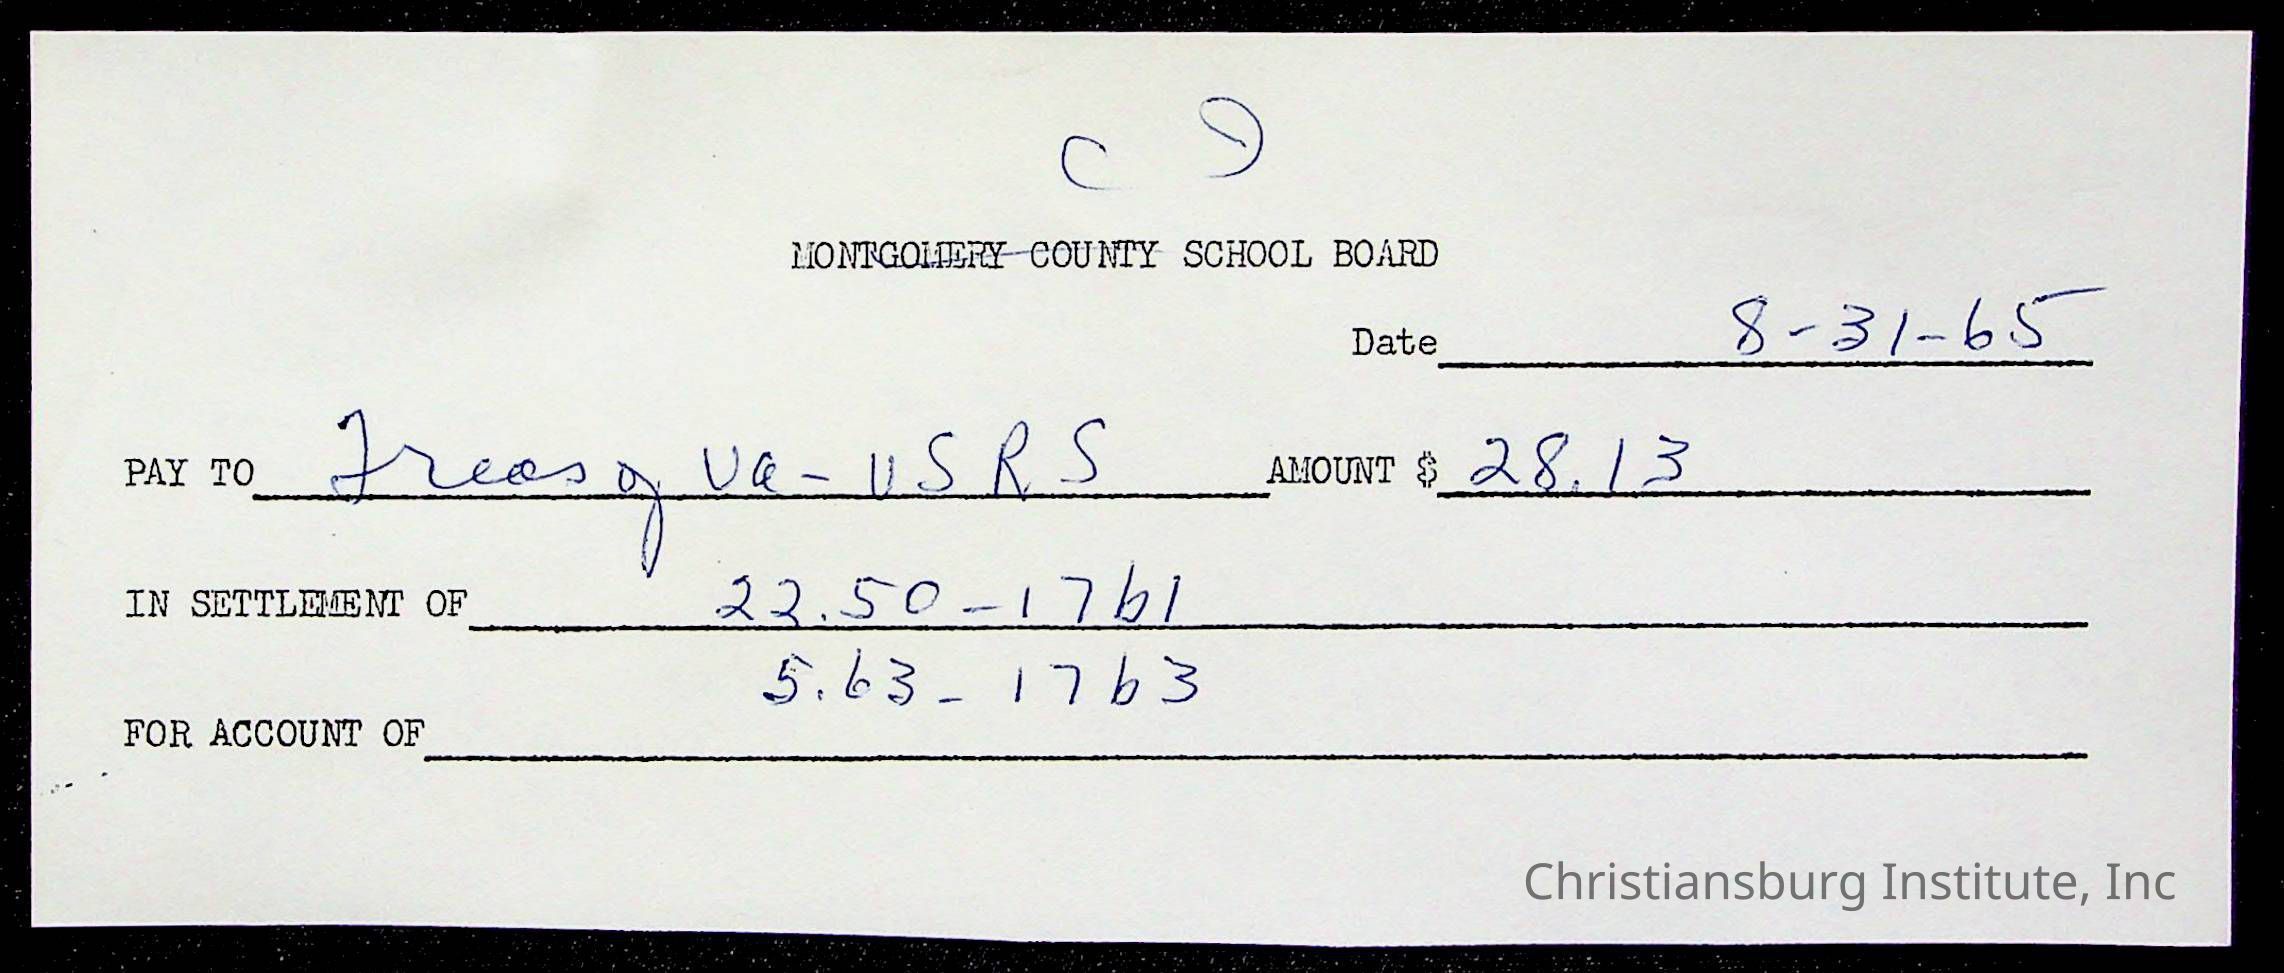 C I
MONTGOMERY COUNTY SCHOOL BOARD
Date 8-31-65
PAY TO Treas of Va - VSRS AMOUNT $ 28.13
IN SETTLEMENT OF 22.50 - 1761
5.63 - 1763
FOR ACCOUNT OF
Christiansburg Institute, Inc